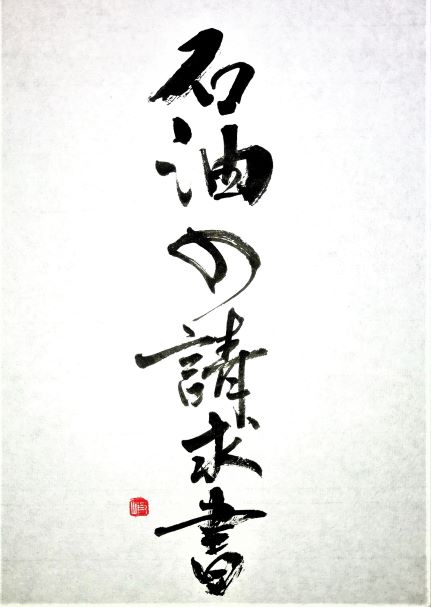 石油の請求書